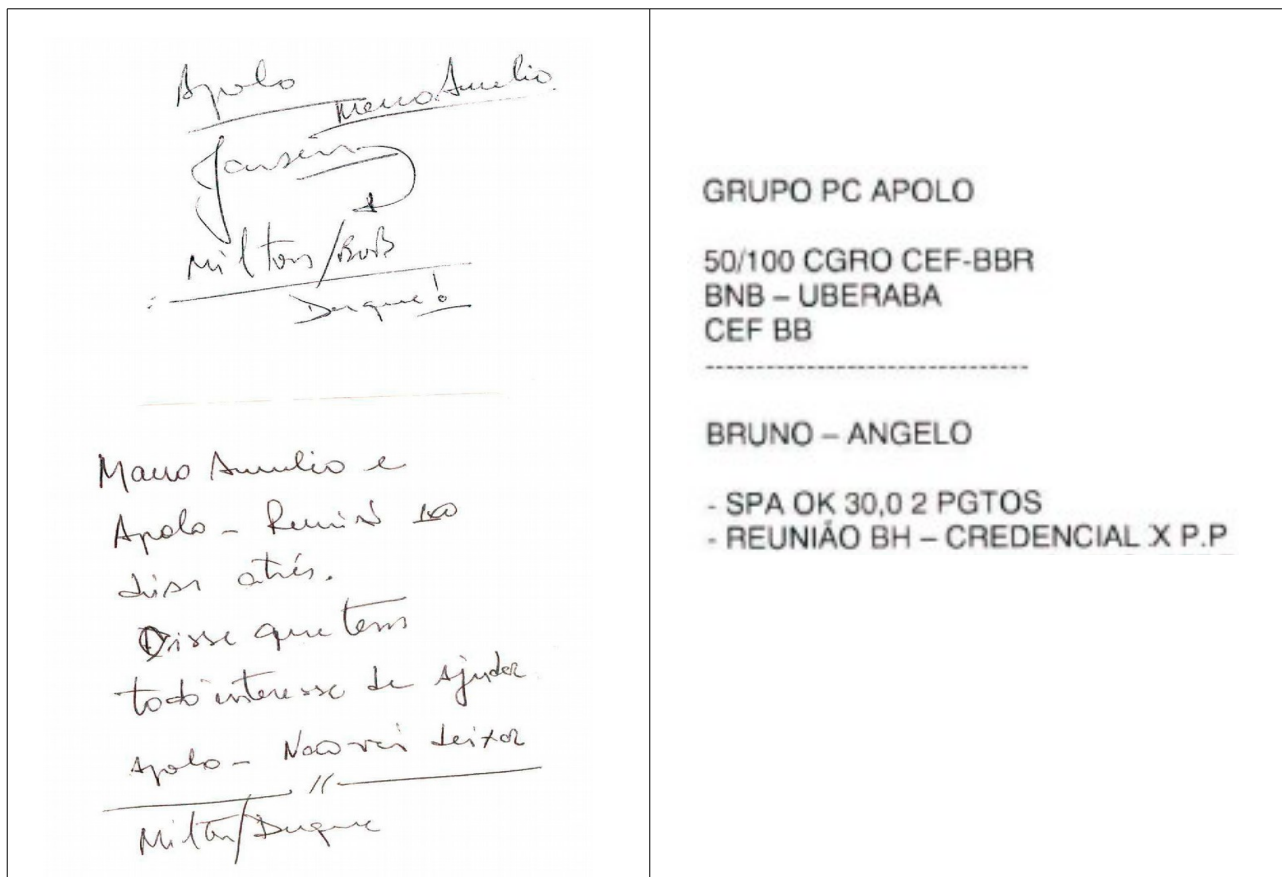 Apolo
Marco Aurelio
Jansein
Milton/BOB
Duque!
Marco Aurelio e
Apolo - Reunião
dias atrás.
Disse que tem
todo interesse de ajudar
Apolo - Não vai deixar
Milton/Duque
GRUPO PC APOLO
50/100 CGRO CEF-BBR
BNB – UBERABA
CEF BB
--------------------------------
BRUNO – ANGELO
- SPA OK 30,0 2 PGTOS
- REUNIÃO BH – CREDENCIAL X P.P